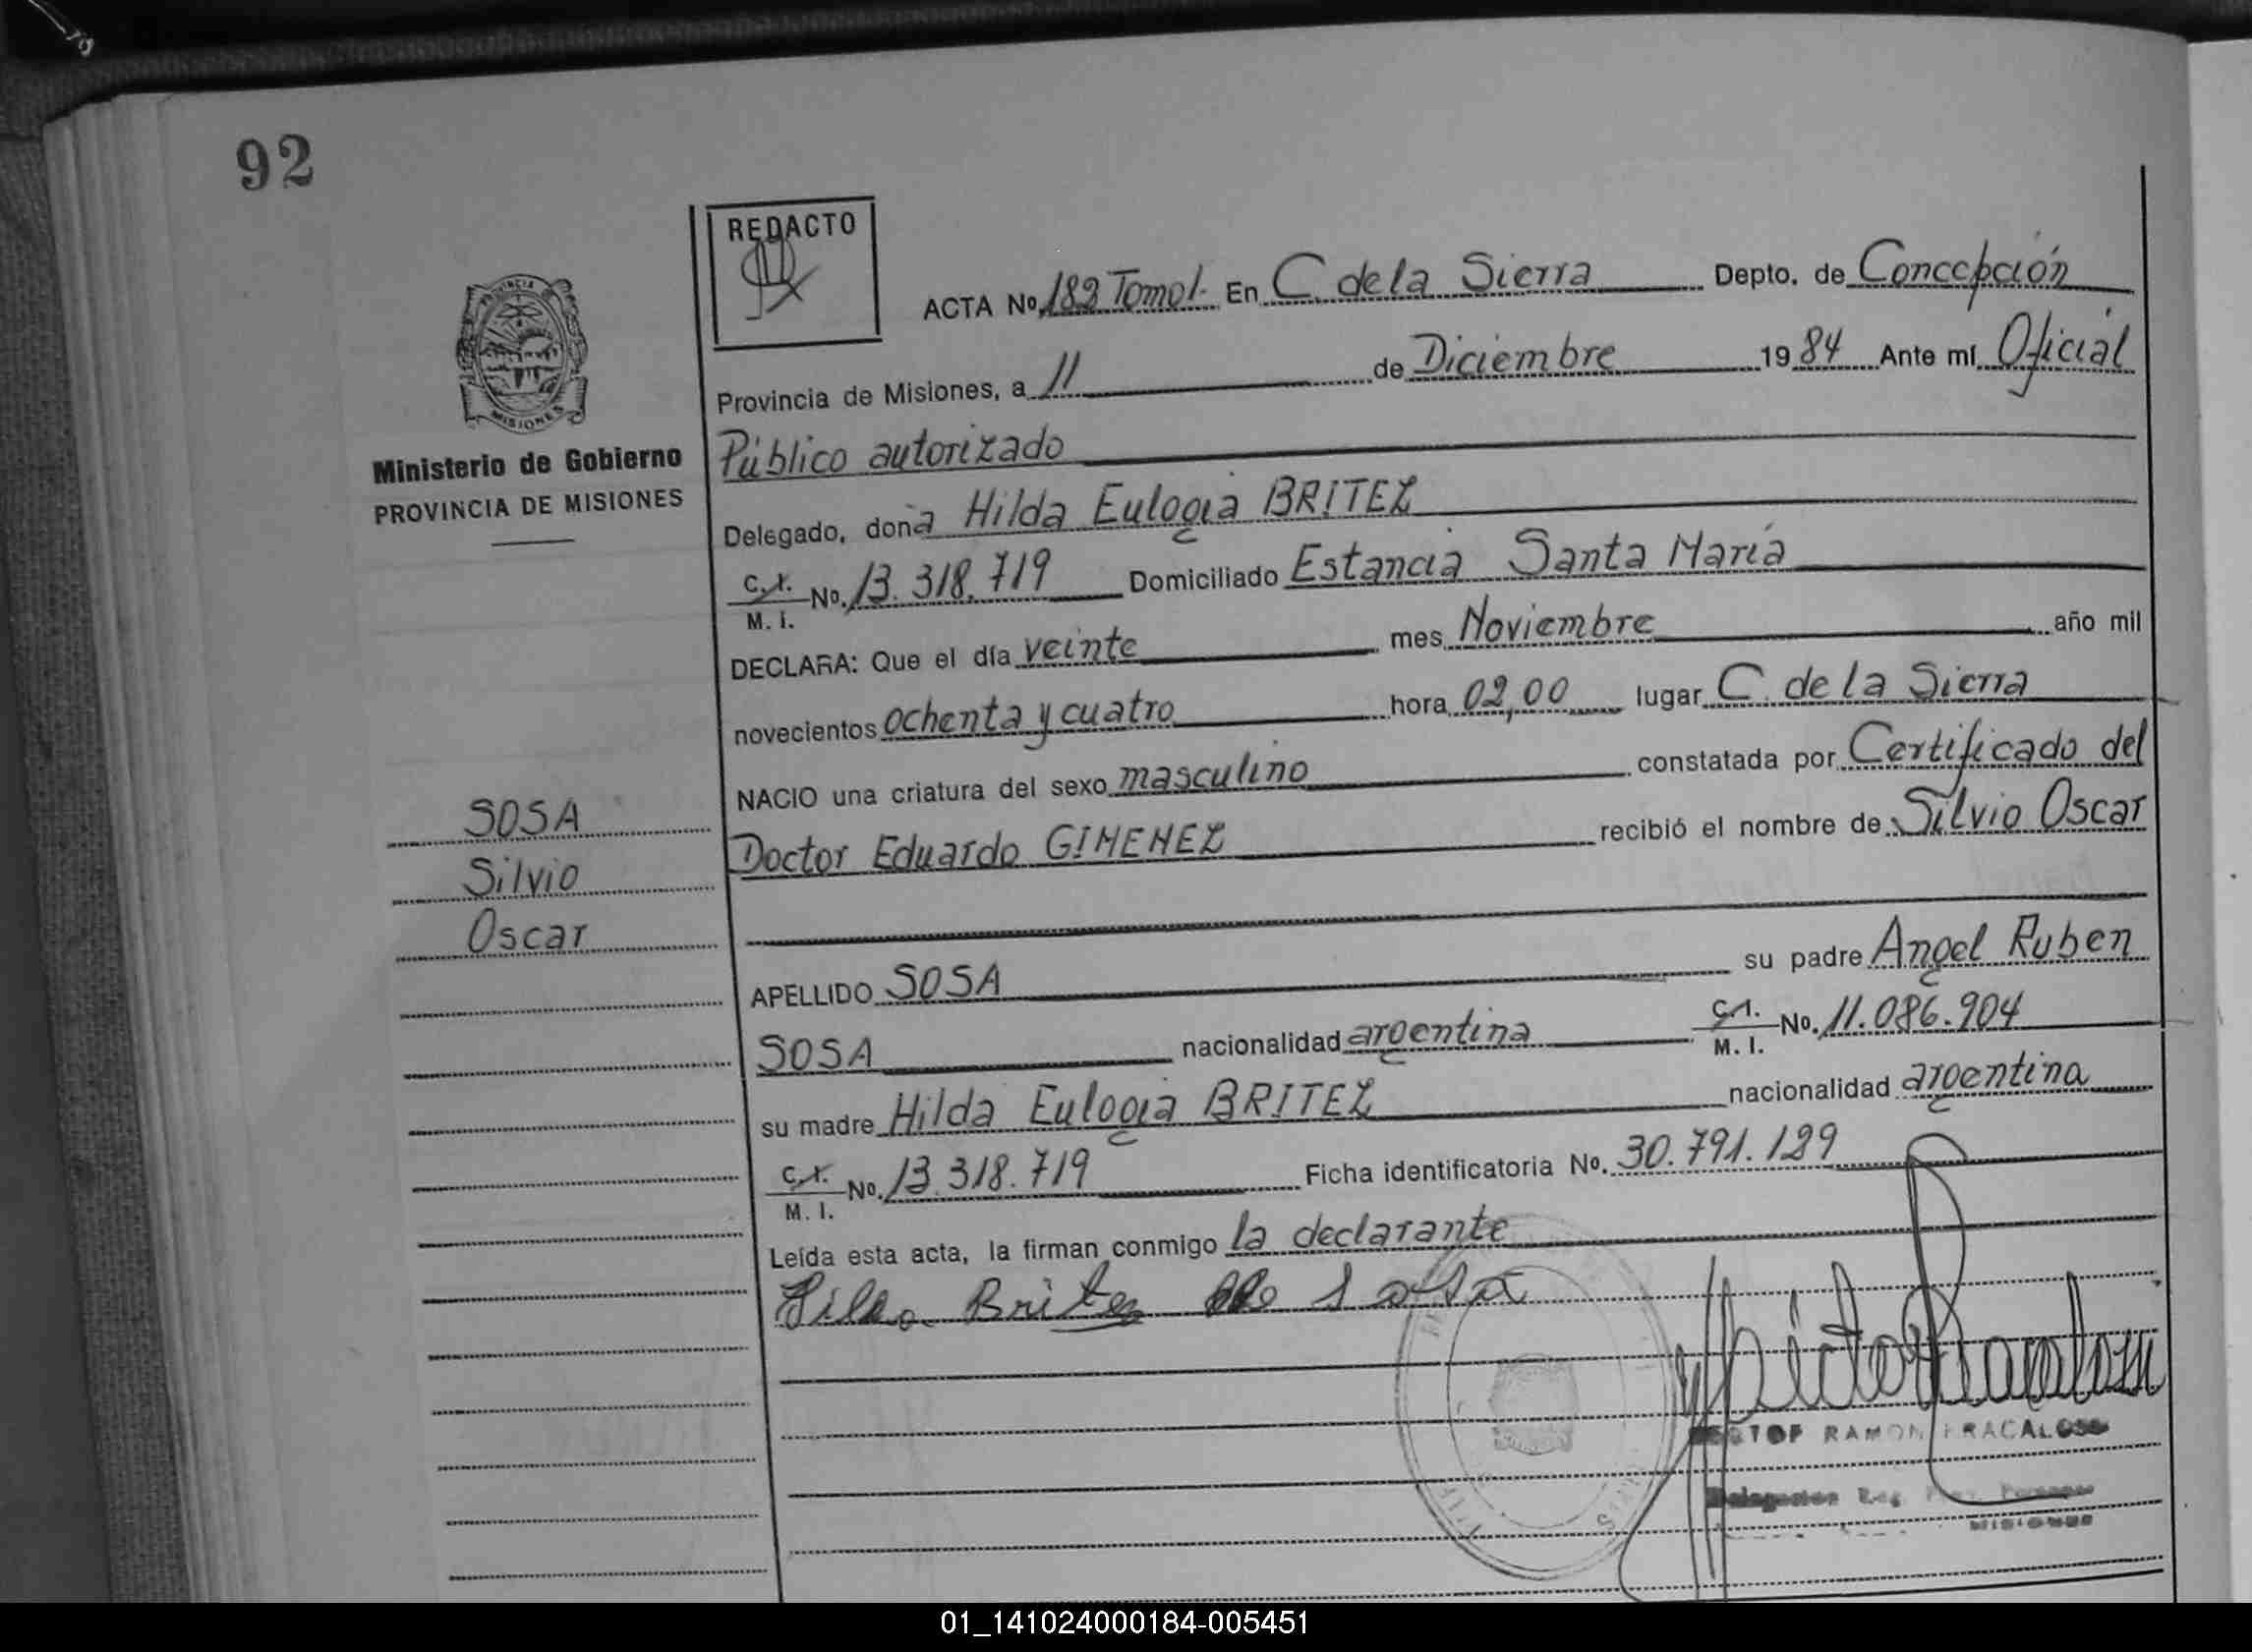 92
REDACTO
ACTA No. 182 Tomo I. En C. de la Sierra Depto. de Concepción
Provincia de Misiones, a 11 de Diciembre 1984 Ante mí Oficial
Público autorizado
PROVINCIA DE
MISIONES
Ministerio de Gobierno
PROVINCIA DE MISIONES
Delegado, doña Hilda Eulogia BRITEZ
C. I. M. I. No. 13.318.719 Domiciliado Estancia Santa María
DECLARA: Que el día veinte mes Noviembre año mil
novecientos ochenta y cuatro hora 02,00 lugar C. de la Sierra
NACIO una criatura del sexo masculino constatada por Certificado del
Doctor Eduardo GIMENEZ recibió el nombre de Silvio Oscar
SOSA
Silvio
Oscar
APELLIDO SOSA su padre Angel Ruben
SOSA nacionalidad argentina C. I. M. I. No. 11.086.904
su madre Hilda Eulogia BRITEZ nacionalidad argentina
C. I. M. I. No. 13.318.719 Ficha identificatoria No. 30.791.129
Leída esta acta, la firman conmigo la declarante
Hilda Britez de Sosa
HECTOR RAMON FRACALOSSI
MISIONES
01_141024000184-005451